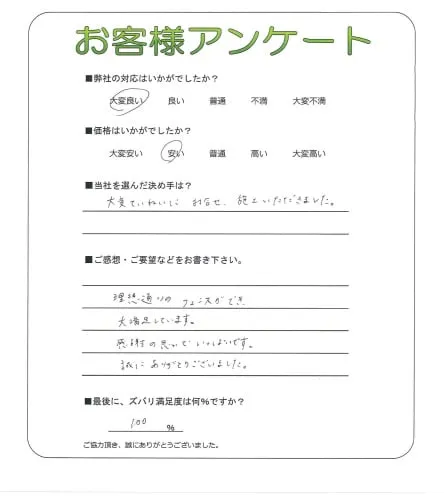 お客様アンケート
■弊社の対応はいかがでしたか？
大変良い 良い 普通 不満 大変不満
■価格はいかがでしたか？
大変安い 安い 普通 高い 大変高い
■当社を選んだ決め手は？
大変ていねいに 打合せ、施工いただきました。
■ご感想・ご要望などをお書き下さい。
理想通りの フェンスができ
大満足しています。
感謝の思いでいっぱいです。
誠に ありがとうございました。
■最後に、ズバリ満足度は何％ですか？
100 ％
ご協力頂き、誠にありがとうございました。